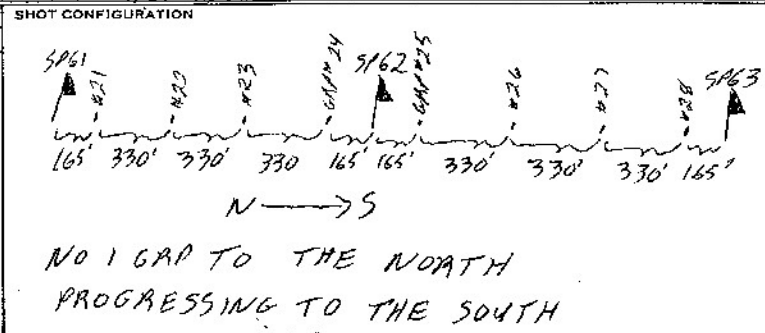 SHOT CONFIGURATION
SP61 #21 #22 #23 GRP# 24 SP62 GRP#25 #26 #27 #28 SP63
165' 330' 330' 330 165' 165' 330' 330' 330' 165'
N S
NO 1 GRP TO THE NORTH
PROGRESSING TO THE SOUTH